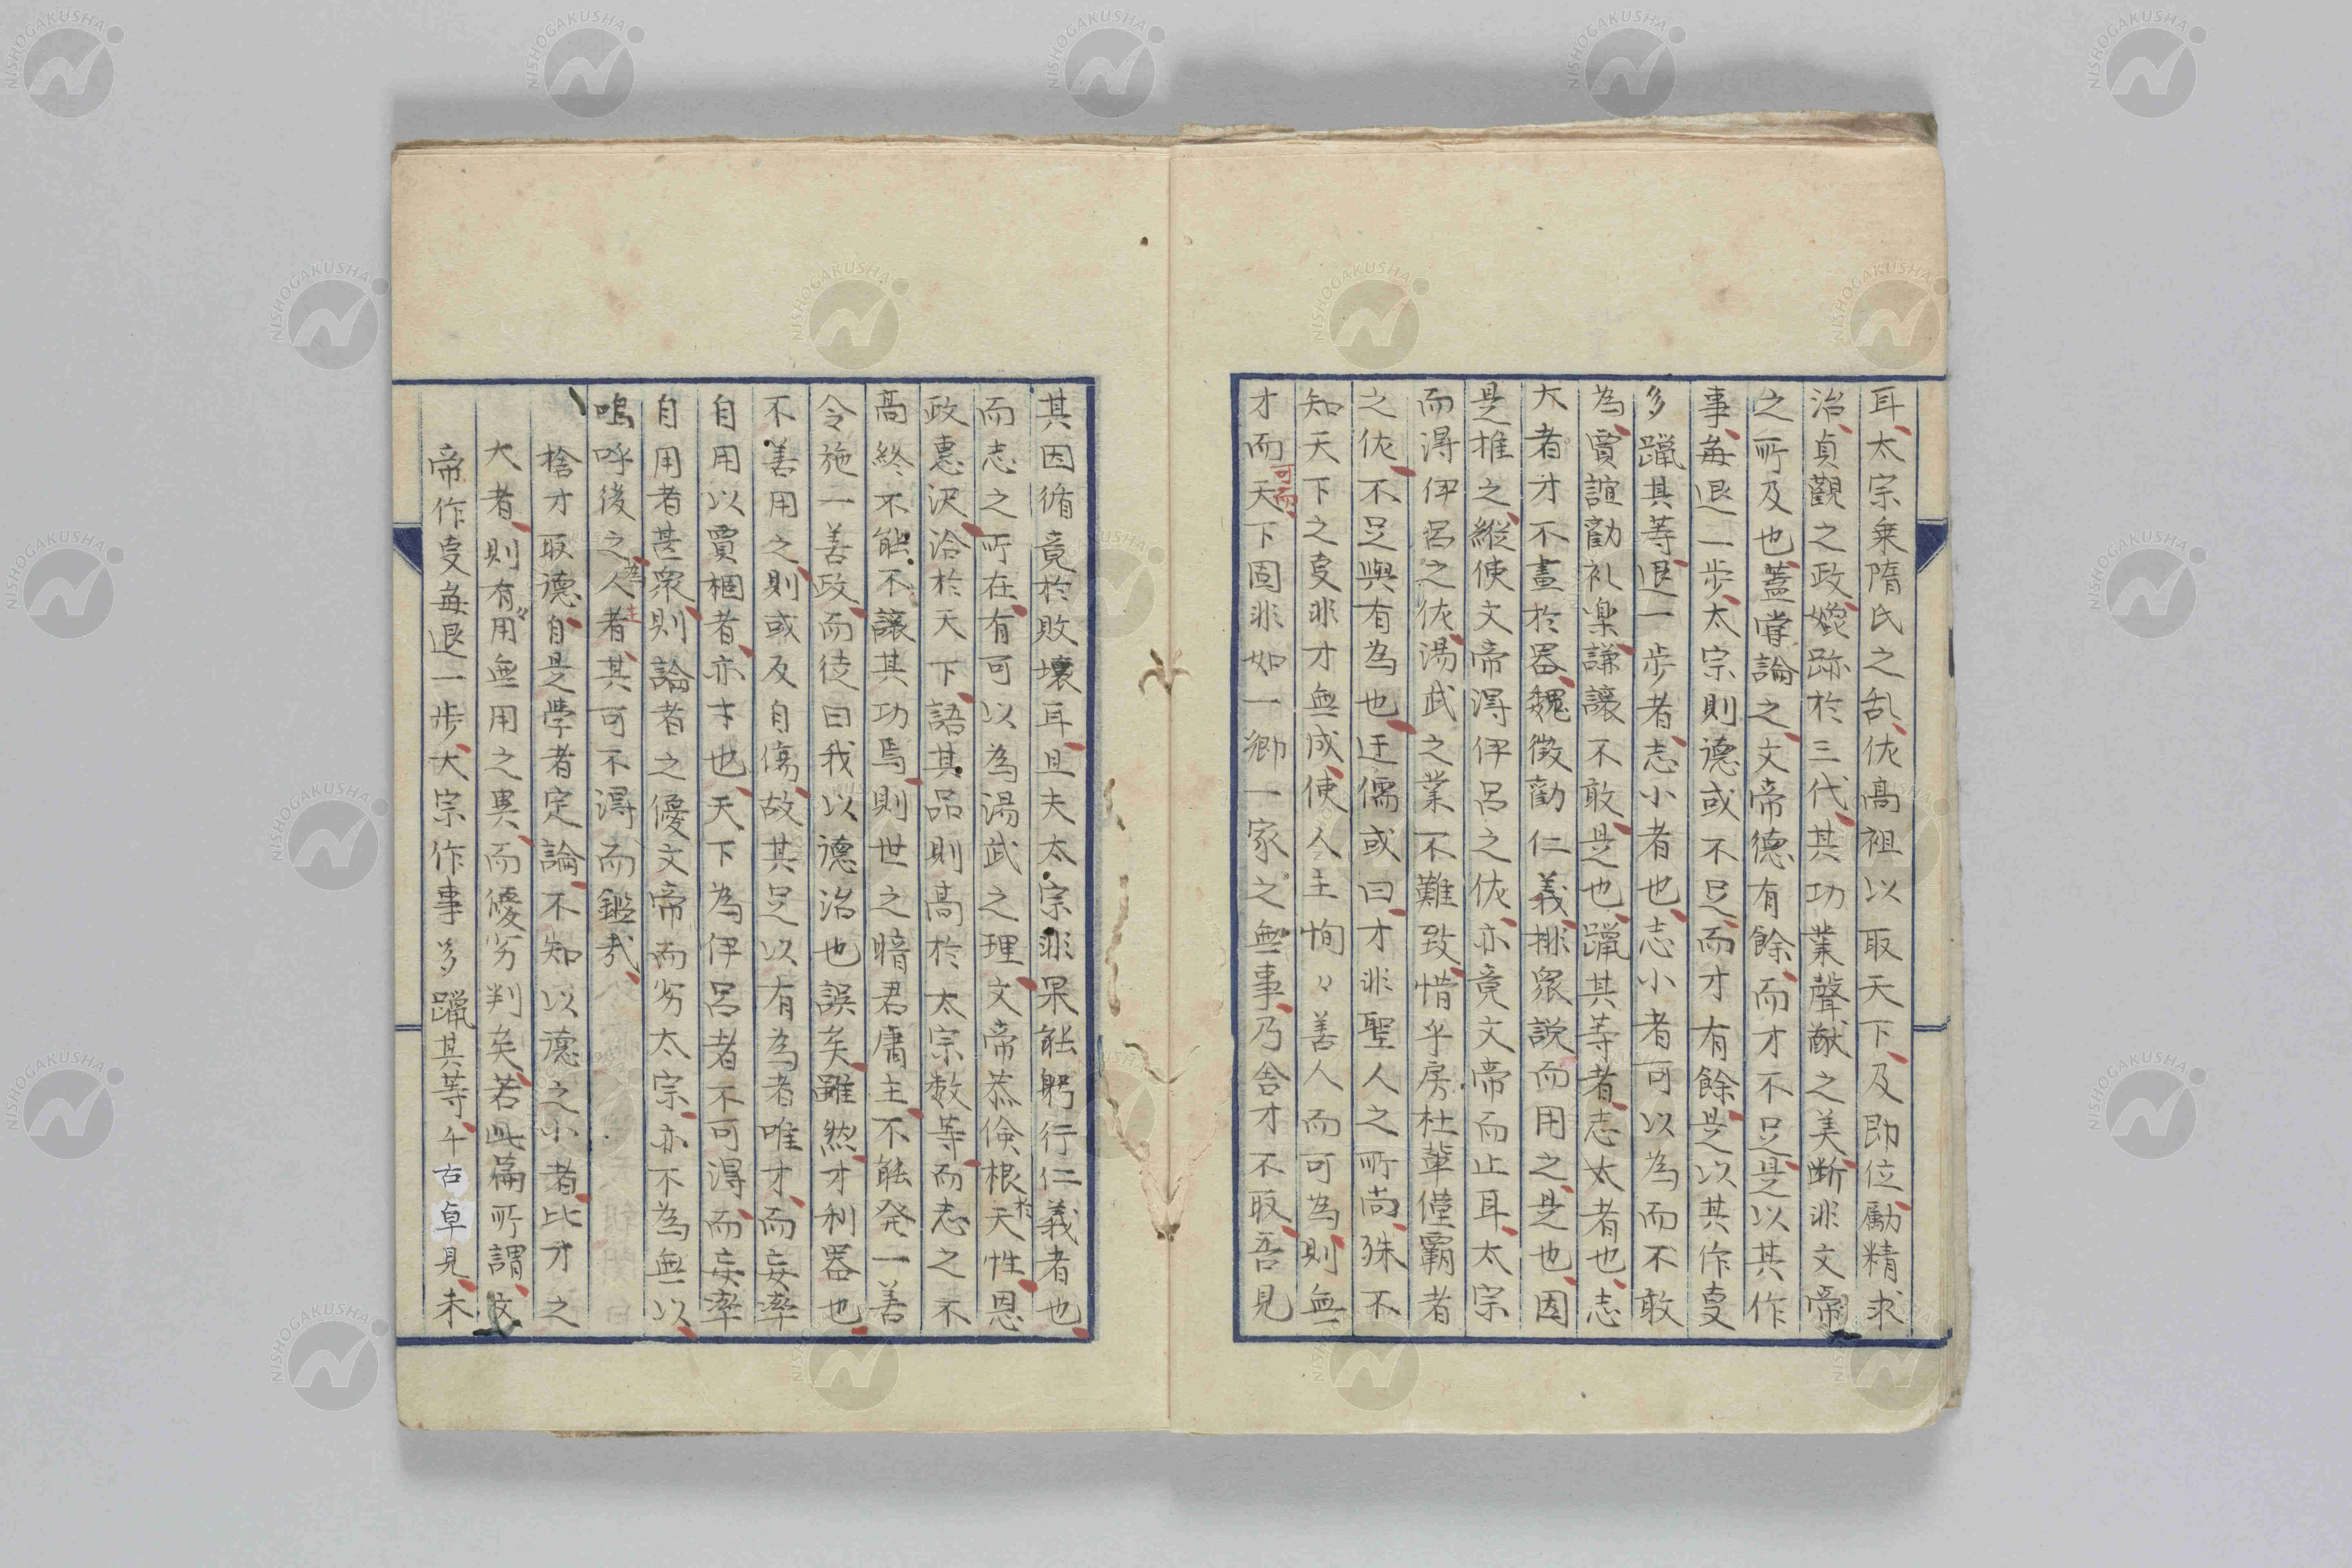 耳太宗乗隋氏之乱佐高祖以取天下及即位励精求
治貞觀之政媲跡於三代其功業聲猷之美断非文帝
之所及也蓋嘗論之文帝德有餘而才不足是以其作
事每退一歩太宗則德或不足而才有餘是以其作変
多躐其等退一歩者志小者也志小者可以為而不敢
為賈誼勧礼楽謙讓不敢是也躐其等者志大者也志
大者才不畫於器魏徴勧仁義排衆説而用之是也因
是推之縦使文帝得伊呂之佐亦竟文帝而止耳太宗
而得伊呂之佐湯武之業不難致惜乎房杜輩僅霸者
之佐不足與有為也迂儒或曰才非聖人之所尚殊不
知天下之変非才無成使人主恂々善人而可為則無
才而天下固非如一郷一家之無事乃舎才不取吾見
可而
其因循竟於敗壊耳且夫太宗非果能躬行仁義者也
而志之所在有可以為湯武之理文帝恭倹根天性恩
於
政惠沢洽於天下語其品則高於太宗数等而志之不
高終不能不讓其功焉則世之暗君庸主不能発一善
令施一善政而徒曰我以德治也誤矣雖然才利器也
不善用之則或反自傷故其足以有為者唯才而妄率
自用以賈棝者亦才也天下為伊呂者不可得而妄率
自用者甚衆則論者之優文帝而劣太宗亦不為無以
嗚呼後之人者其可不得而鑑哉
為 主
捨才取德自是學者定論不知以德之小者比才之
大者則有用無用之異而優劣判矣若此篇所謂文
帝作変每退一歩太宗作事多躐其等千古卓見未